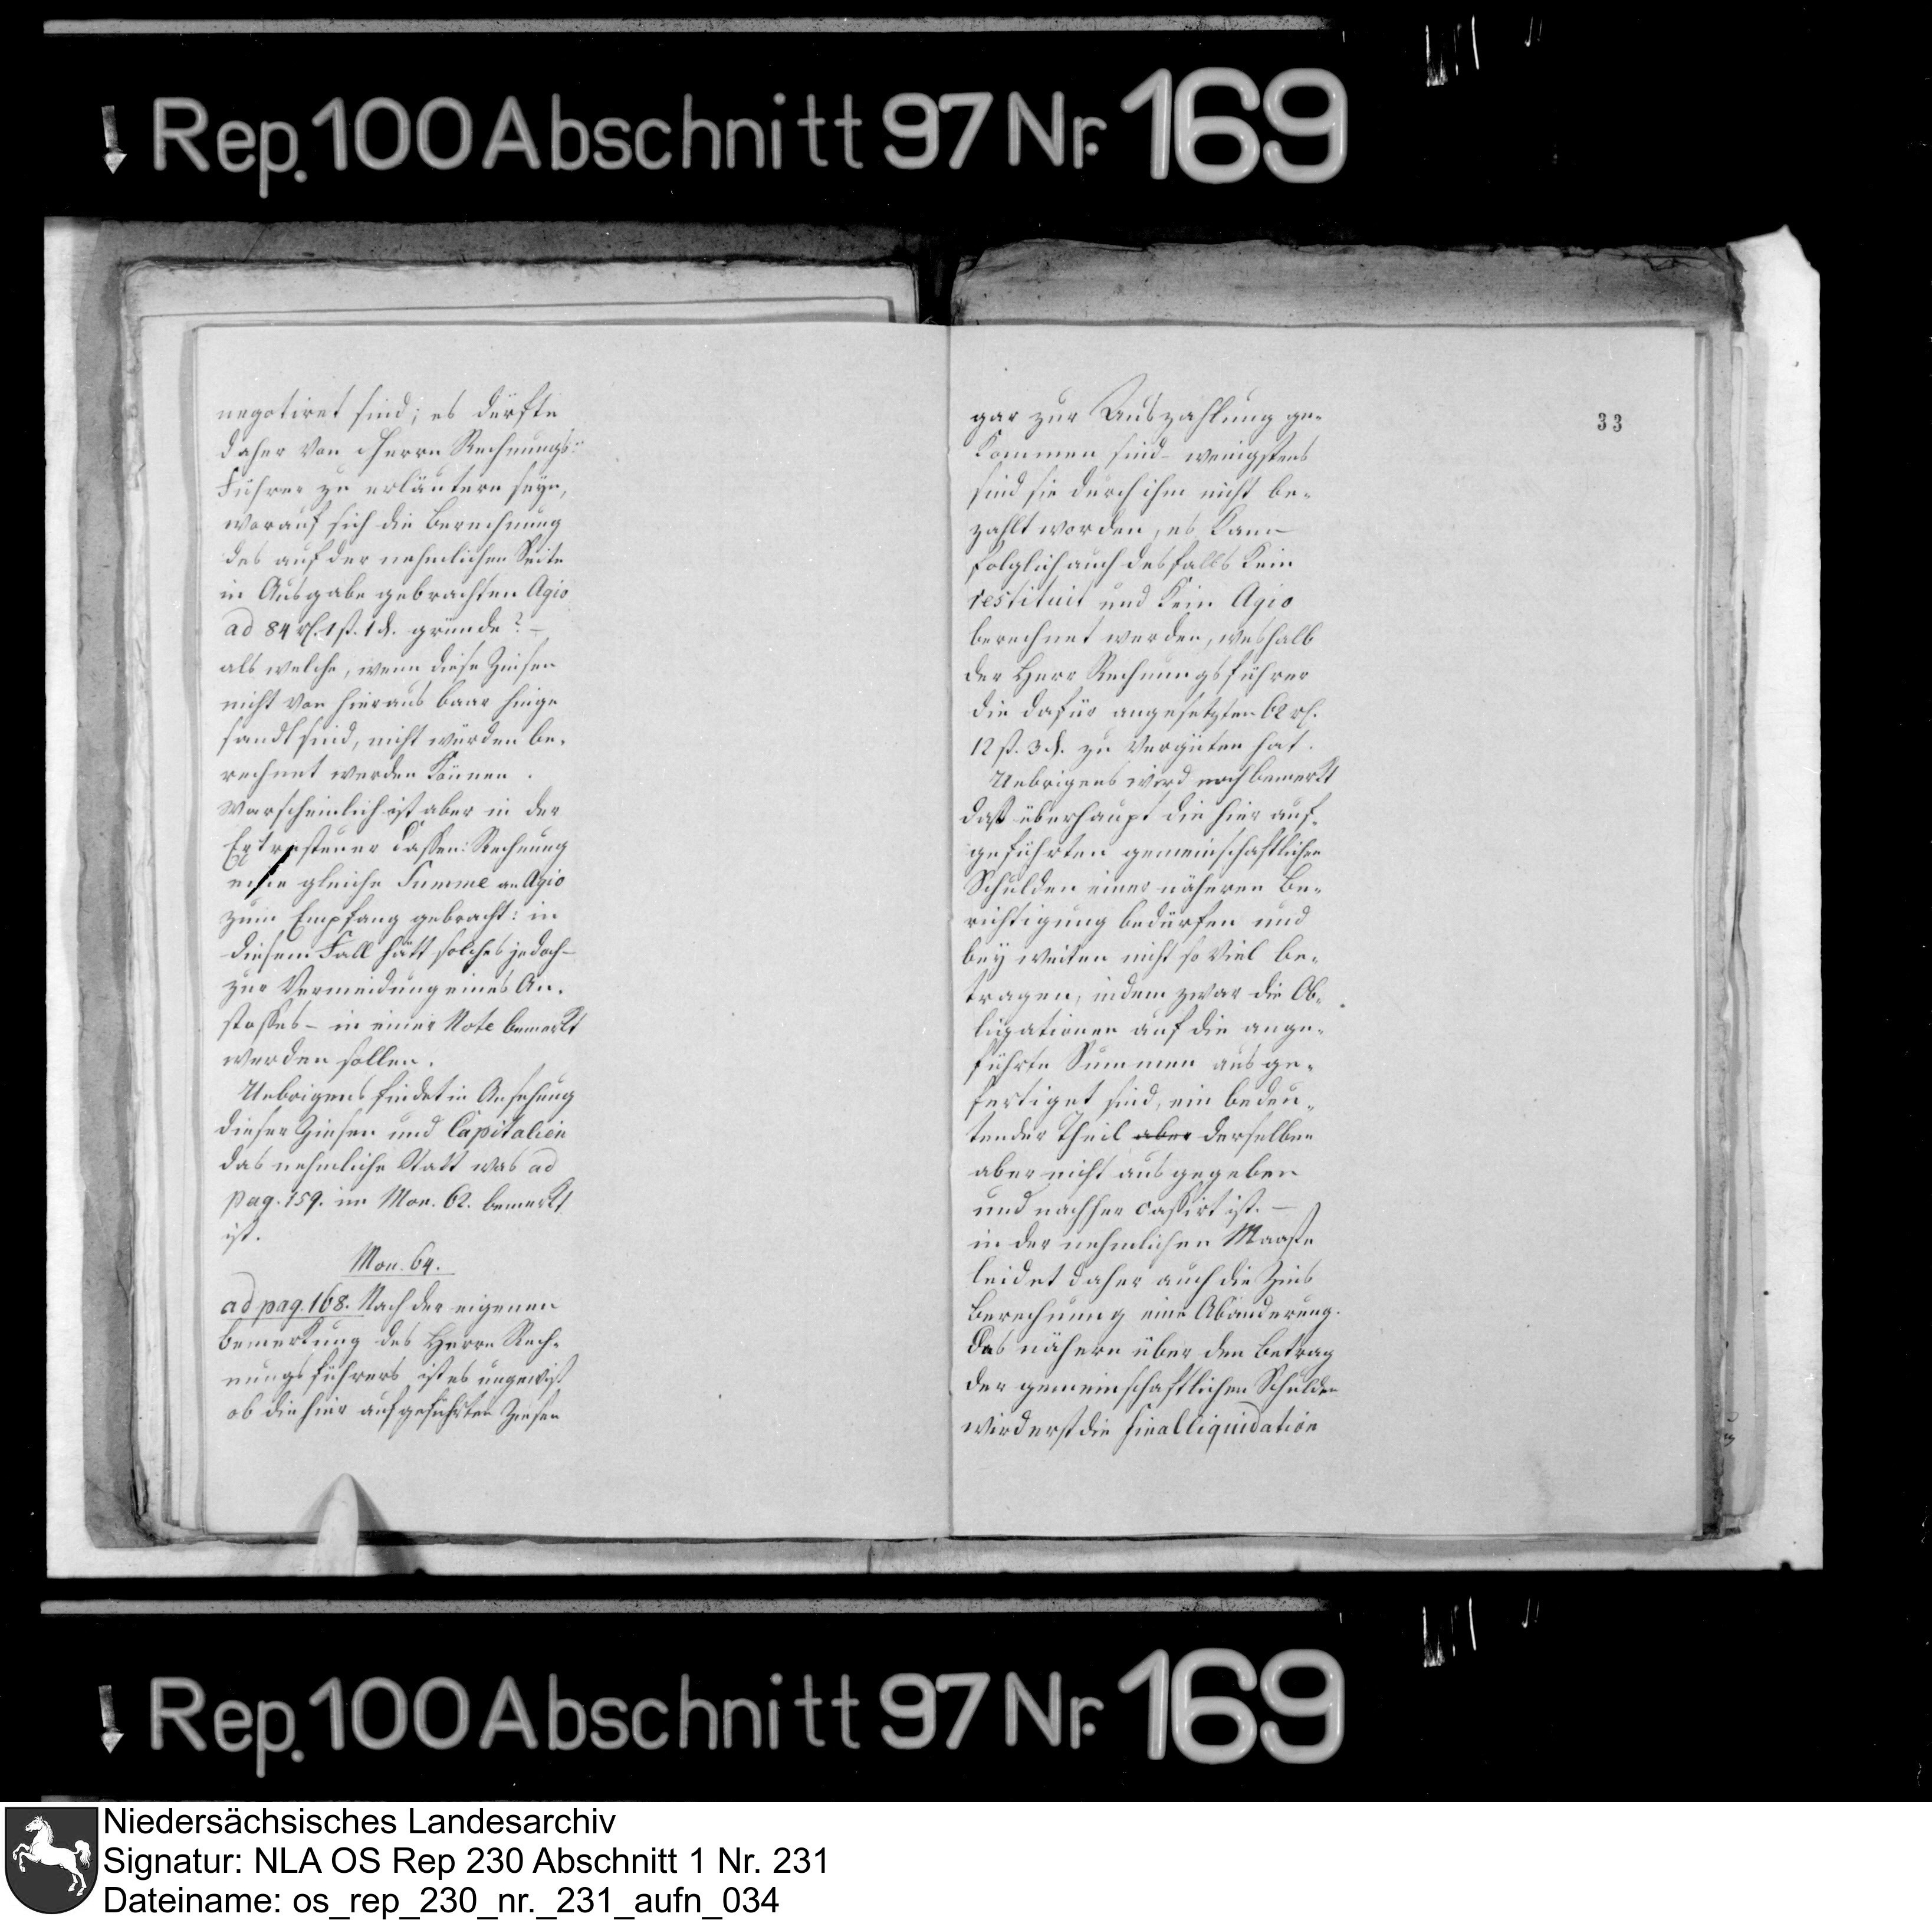 Rep. 100 Abschnitt 97 Nr. 169
negotiret sind; es dürfte
daher von Herrn Rechnungs:
Führer zu erläutern seyn,
worauf sich die Berechnung
des auf der nehmlichen Seite
in Ausgabe gebrachten Agio
ad 84 rl. 1 ß. 1 d. gründe? –
als welche, wenn diese Zinsen
nicht von hieraus baar hinge
sandt sind, nicht würden be-
rechnet werden können.
Warscheinlich ist aber in der
Extrasteuer Cassen: Rechnung
eine gleiche Summe an Agio
zum Empfang gebracht: in
diesem Fall hätt solches jedoch –
zur Vermeidung eines An-
stosses – in einer Note bemerkt
werden sollen.
Uebrigens findet in Ansehung
dieser Zinsen und Capitalien
das nehmliche Statt was ad
pag. 159. im Mon. 62. bemerkt
ist.
Mon. 64.
ad pag. 168. Nach der eigenen
Bemerkung des Herrn Rech-
nungsführers ist es ungewiß
ob die hier aufgeführten Zinsen
33
gar zur Auszahlung ge-
kommen sind – wenigstens
sind sie durch ihm nicht be-
zahlt worden, es kann
folglich auch desfalls kein
restituit und kein Agio
berechnet werden, weshalb
der Herr Rechnungsführer
die dafür angesetzten 62 rl.
12 ß. 3 d. zu vergüten hat.
Uebrigens wird noch bemerkt
daß überhaupt die hier auf-
geführten gemeinschaftlichen
Schulden einer näheren Be-
richtigung bedürfen und
bey weiten nicht so viel be-
tragen, indem zwar die Ob-
ligationen auf die ange-
führte Summen ausge-
fertiget sind, ein bedeu-
tender Theil aber derselben
aber nicht ausgegeben
und nachher cassirt ist. –
in der nehmlichen Maaße
leidet daher auch die Zins
Berechnung eine Abänderung.
Das nähere über den Betrag
der gemeinschaftlichen Schulden
wird erst die Finalliquidation
Rep. 100 Abschnitt 97 Nr. 169
Niedersächsisches Landesarchiv
Signatur: NLA OS Rep 230 Abschnitt 1 Nr. 231
Dateiname: os_rep_230_nr._231_aufn_034